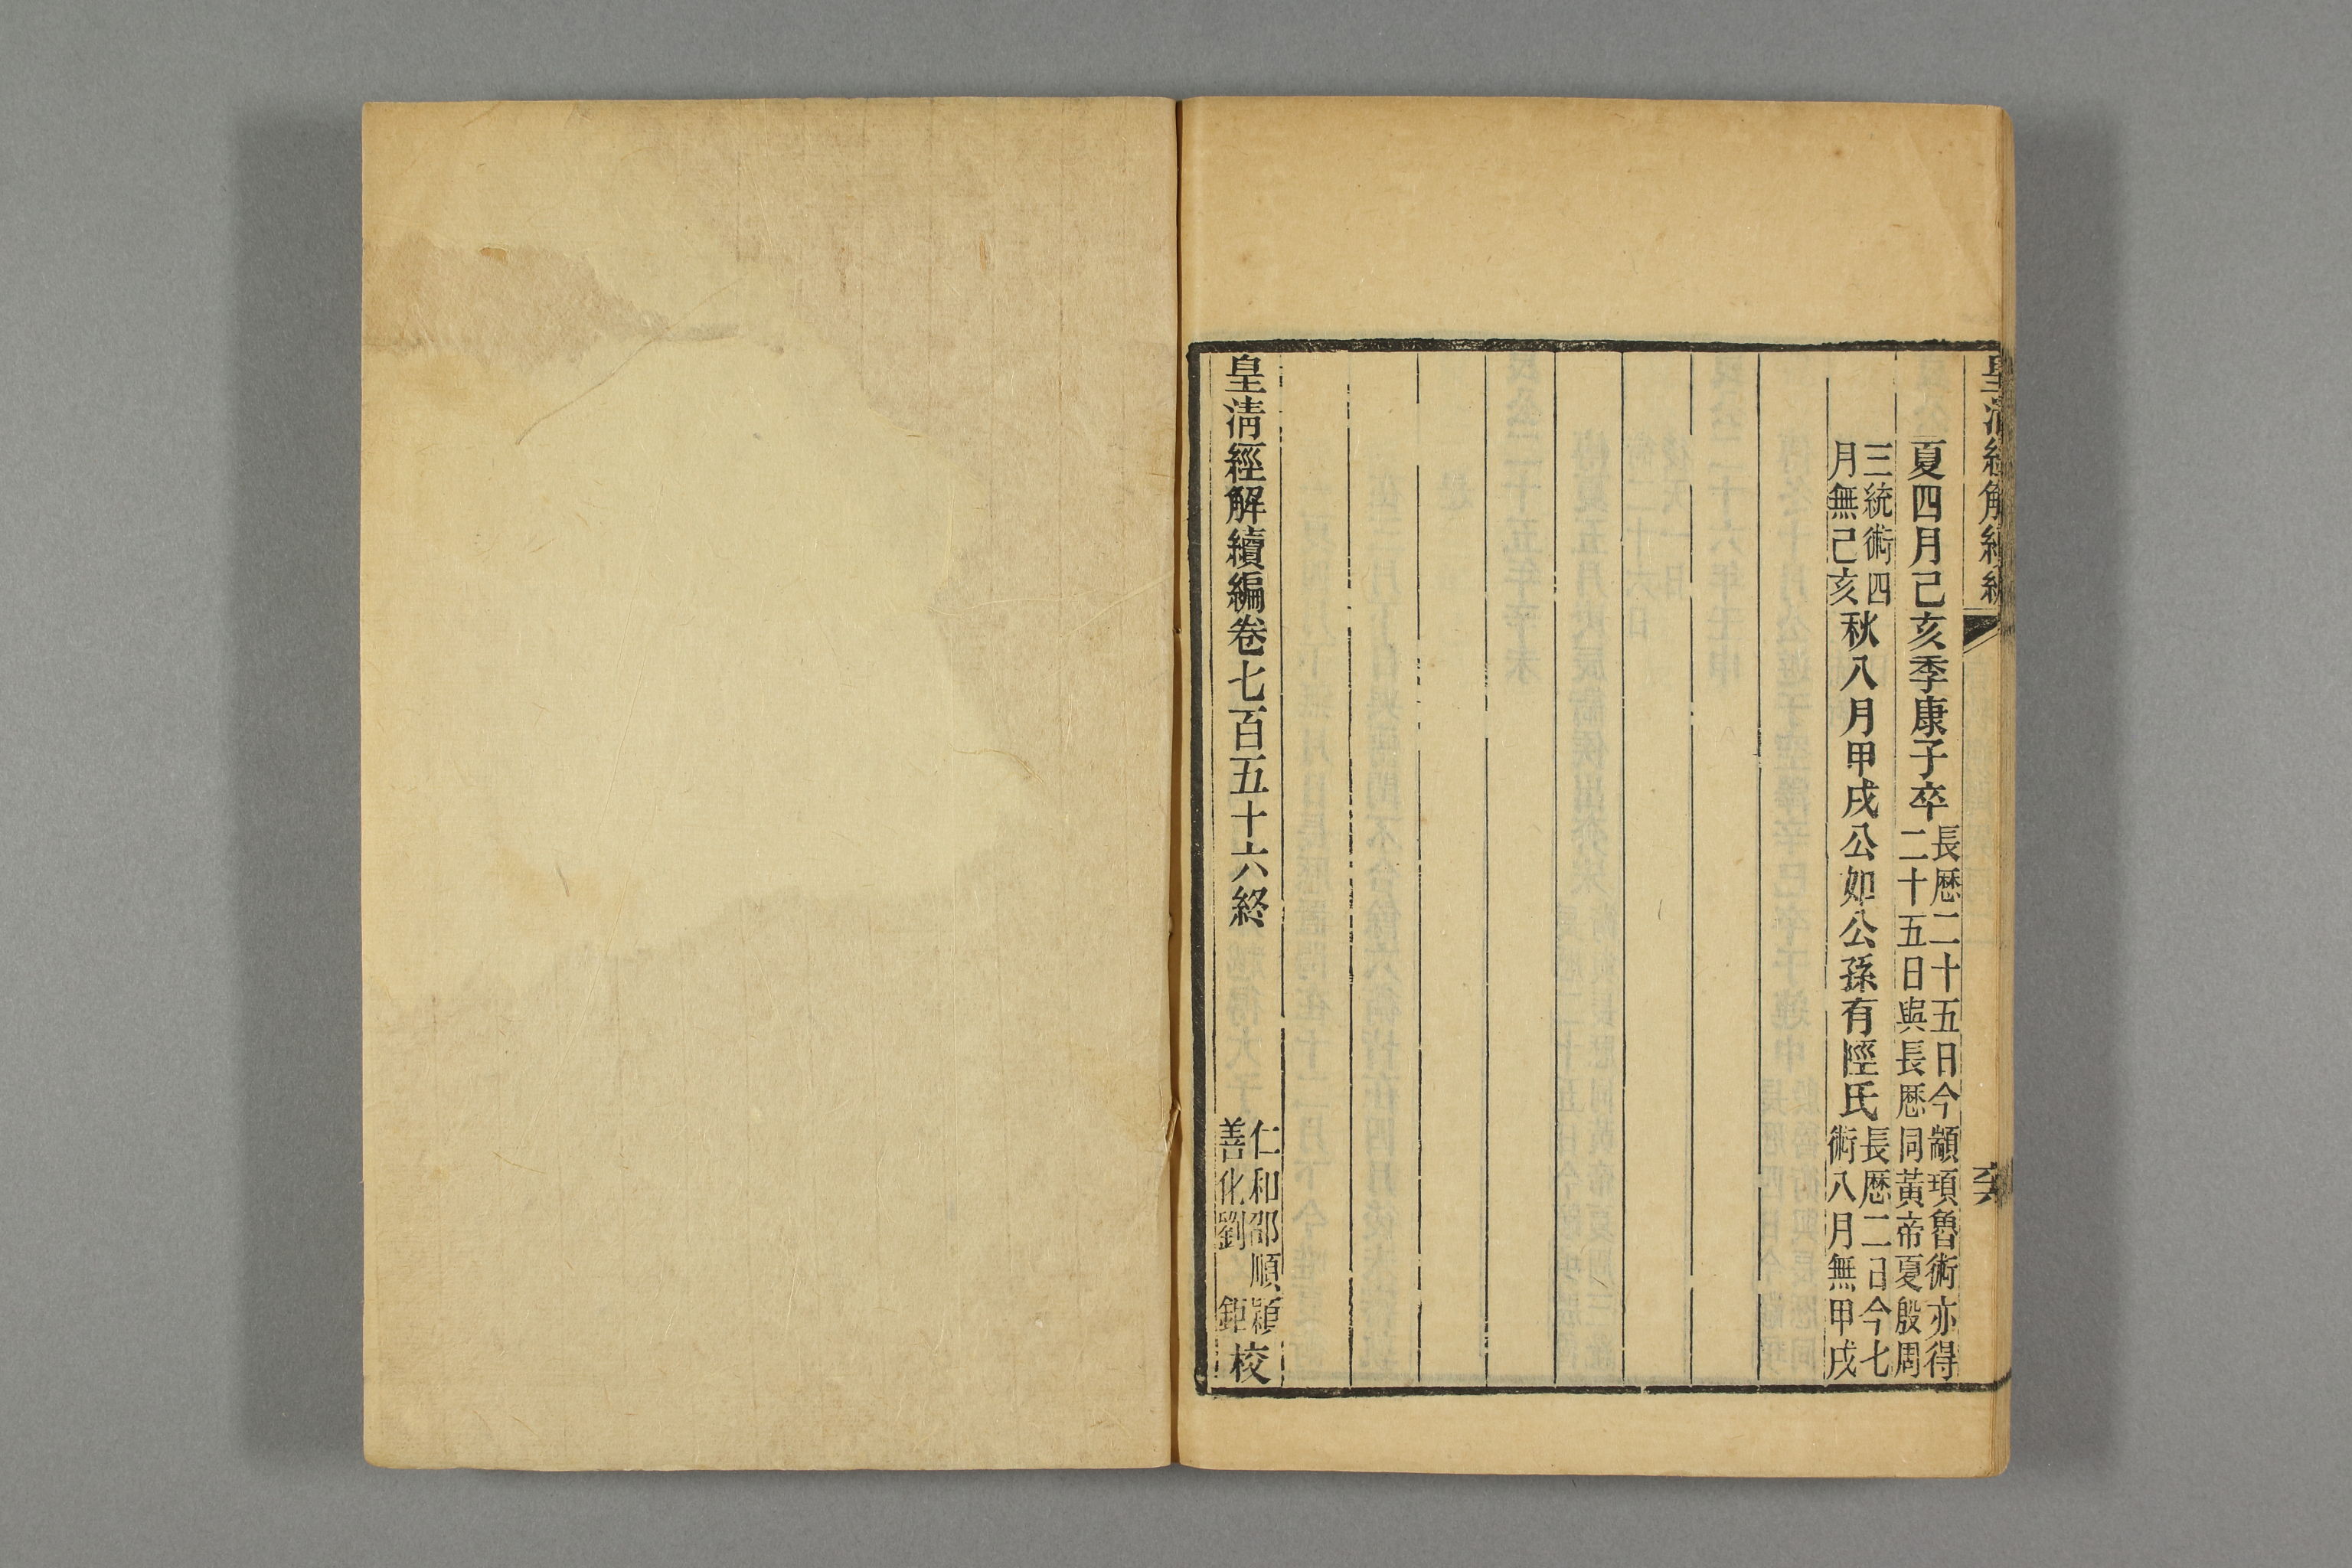 皇清經解續編
夏四月己亥季康子卒長厯二十五日今顓頊魯術亦得二十五日與長厯同黃帝夏殷周
三統術四月無己亥秋八月甲戌公如公孫有陘氏長厯二日今七術八月無甲戌
皇清經解續編卷七百五十六終 仁和邵順穎善化劉鉅校